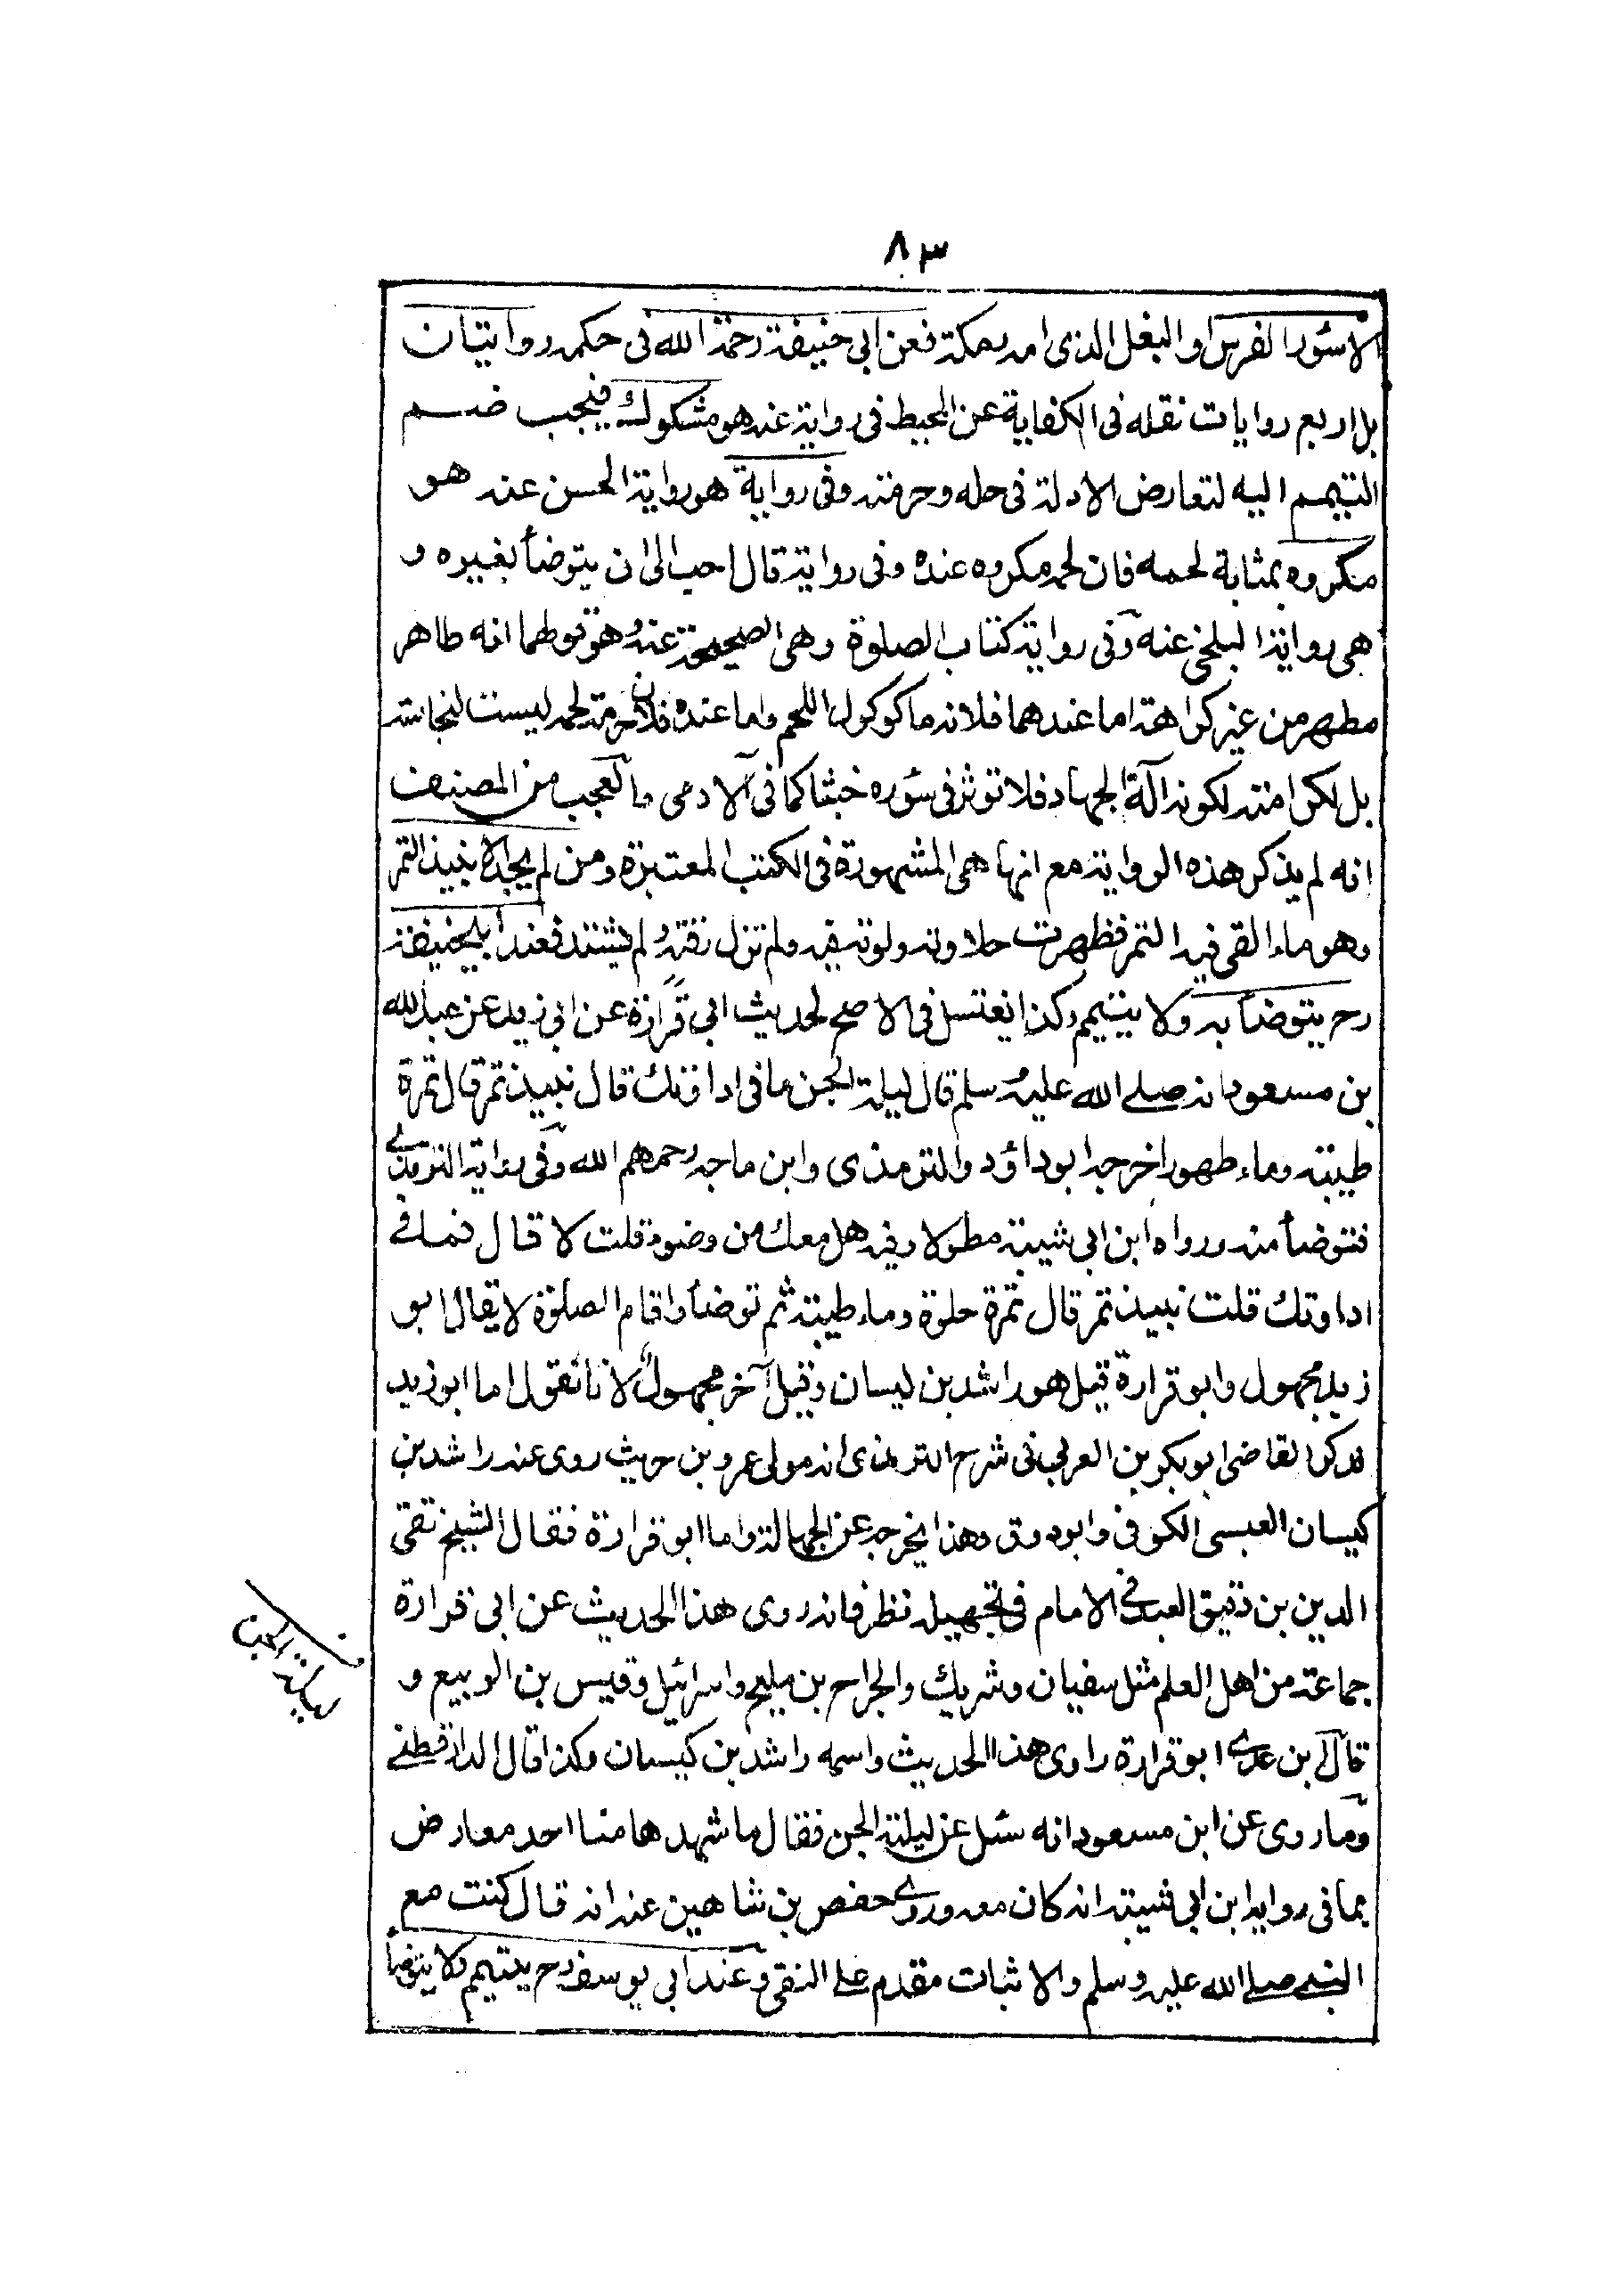 ٨٣
الا سؤر الفرس او البغل الذى امه رمكة فعن ابى حنيفة رحمة الله فى حكمه روايتان
بل اربع روايات نقله فى الكفاية عن المحيط فى رواية عنه هو مشكوك فيجب ضم
التيمم اليه لتعارض الادلة فى حله وحرمته وفى رواية هو رواية الحسن عنه هو
مكروه بمثابة لحمه فان لحمه مكروه عنده وفى رواية قال احب الى ان يتوضأ بغيره و
هى رواية البلخى عنه وفى رواية كتاب الصلوة وهى الصحيحة عنه وهو قولهما انه طاهر
مطهر من غير كراهة اما عندهما فلانه ماكوكول اللحم واما عنده فلان حرمة لحمه ليست لنجاسته
بل لكرامته لكونه آلة الجهاد فلا توثر فى سؤره خبثا كما فى الآدمى والعجب من المصنف
انه لم يذكر هذه الرواية مع انها هى المشهورة فى الكتب المعتبرة ومن لم يجد الا نبيذ التمر
وهو ماء القى فيه التمر فظهرت حلاوته ولو تبقيه ولم تزل رقته ولم يشتد فعند ابيحنيفة
رح يتوضأ به ولا يتيمم وكذا يغتسل فى الاصح لحديث ابى قزازة عن ابى زيد عن عبد الله
بن مسعود انه صلے الله عليه وسلم قال ليلة الجن ما فى اداوتك قال نبيذ تمر قال تمرة
طيبة وماء طهور اخرجه ابوداؤد والترمذى وابن ماجه رحمهم الله وفى رواية الترمذى
فتوضأ منه ورواه ابن ابى شيبة مطولا وفيه هل معك من وضوء قلت لا قال فما فى
اداوتك قلت نبيذ تمر قال تمرة حلوة وماء طيبة ثم توضأ واقام الصلوة لا يقال ابو
زيد مجهول وابو قرارة قيل هو راشد بن ليسان وقيل آخر مجهول لانا نقول اما ابو زيد
فذكر القاضى ابو بكر بن العربى فى شرح الترمذى انه مولى عمرو بن حريث روى عنه راشد بن
كيسان العبسى الكوفى وابو روق وهذا يخرجه عن الجهالة واما ابو قرارة فقال الشيخ تقى
الدين بن دقيق العبد فى الامام فى تجهيله نظر فانه روى هذا الحديث عن ابى قرارة
جماعة من اهل العلم مثل سفيان وشريك والجراح بن مليح واسرائيل وقيس بن الربيع و
قال ابن عدى ابو قرارة راوى هذا الحديث واسمه راشد بن كيسان وكذا قال الدارقطنى
وما روى عن ابن مسعود انه سئل عن ليلة الجن فقال ما شهدها منا احد معارض
بما فى رواية ابن ابى شيبة انه كان معه وروى حفص بن شاهين عنه انه قال كنت مع
النبى صلے الله عليه وسلم والاثبات مقدم على النفى وعند ابى يوسف رح يتيمم ولا يتوضأ
ليلة الجن